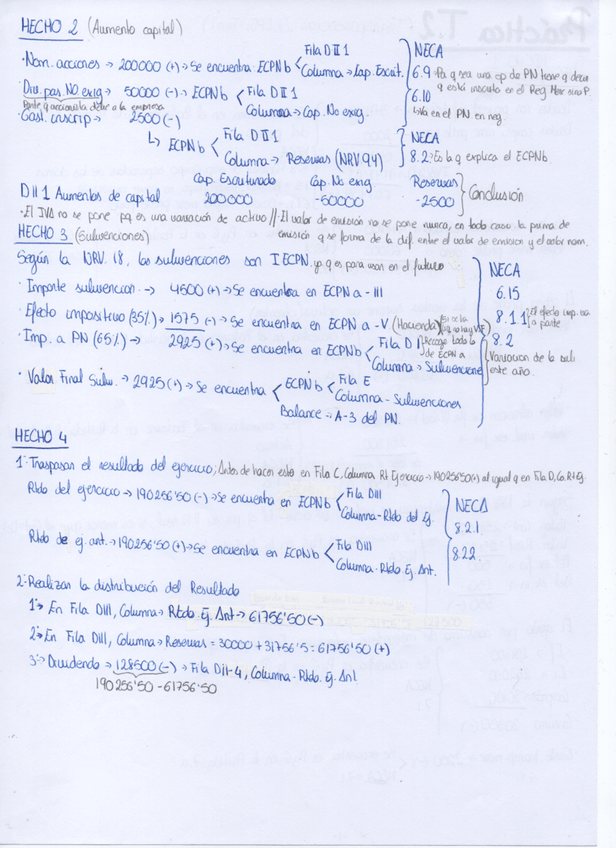 HECHO 2 (Aumento capital)
· Nom. acciones → 200000 (+) → Se encuentra ECPN b < Fila D II 1
Columna → Cap. Escrit.
· Div. pas. NO exig → 50000 (-) → ECPN b < Fila D II 1
Columna → Cap. No exig.
· Gast. inscrip → 2500 (-)
↳ ECPN b < Fila D II 1
Columna → Reservas (NRV 9.4)
NECA
6.9 Pa q sea una op de PN tiene q decir
q está inscrito en el Reg Mer sino P.
6.10
↳ Va en el PN. en neg.
NECA
8.2 Es la q explica el ECPN b
Cap. Escriturado Cap. No exig Reservas
D II 1 Aumentos de capital 200000 -50000 -2500 } Conclusión
· El IVA no se pone pq es una variación de activo // El valor de emisión no se pone nunca, en todo caso la prima de
emisión q se forma de la dif. entre el valor de emisión y el valor nom.
HECHO 3 (Subvenciones)
Según la NRV. 18, las subvenciones son I ECPN. ya q es para usar en el futuro
· Importe subvencion → 4500 (+) → Se encuentra en ECPN a - III
· Efecto impositivo (35%) → 1575 (-) → Se encuentra en ECPN a - V (Hacienda)
· Imp. a PN (65%) → 2925 (+) → Se encuentra en ECPN b < Fila D I Recoge todo lo de ECPN a
Columna → Subvenciones
· Valor Final Subv. → 2925 (+) → Se encuentra < ECPN b < Fila E
Columna - Subvenciones
Balance → A-3 del PN.
NECA
6.15
8.1.1 El efecto imp. va a parte
8.2
Variación de la sub
este año.
HECHO 4
1º Traspasar el resultado del ejercicio; Antes de hacer esto en Fila C, Columna Rt Ejercicio → 190256'50 (+) al igual q en Fila D, Co. Rt Ej.
Rtdo del ejercicio → 190256'50 (-) → Se encuentra en ECPN b < Fila D III
Columna - Rtdo del Ej.
Rtdo de ej. ant. → 190256'50 (+) → Se encuentra en ECPN b < Fila D III
Columna - Rtdo. Ej. Ant.
NECA
8.2.1
8.2.2.
2º Realizar la distribución del Resultado
1º → En Fila D III, Columna → Rtdo. Ej. Ant → 61756'50 (-)
2º → En Fila D III, Columna → Reservas = 30000 + 31756'5 = 61756'50 (+)
3º → Dividendo → 128500 (-) → Fila D II-4, Columna - Rtdo. Ej. Ant
190256'50 - 61756'50